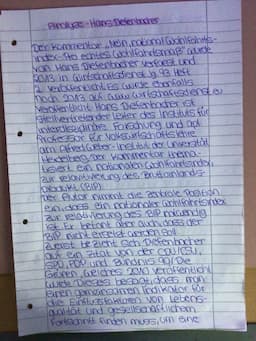 Analyse - Hans Diefenbacher
Der Kommentar „Mein nationaler Wohlfahrts-
index - Ein echtes Wohlfahrtsmaß" wurde
von Hans Diefenbacher verfasst und
2013 in Wirtschaftsdienst Jg. 93 Heft
2 veröffentlicht. Es wurde ebenfalls
noch 2013 auf www.wirtschaftsdienst.eu
veröffentlicht. Hans Diefenbacher ist
stellvertretender Leiter des Instituts für
interdisziplinäre Forschung und apl.
Professor für Volkswirtschaftslehre
am Alfred Weber-Institut der Universität
Heidelberg. Der Kommentar thema-
tisiert den nationalen Wohlfahrtsindex
zur Relativierung des Bruttoinlands-
produkt (BIP).
Der Autor nimmt die zentrale Position
ein, dass ein nationaler Wohlfahrtsindex
zur Relativierung des BIP notwendig
ist. Er betont aber auch, dass der
BIP nicht ersetzt werden soll.
Zuerst bezieht sich Diefenbacher
auf ein Zitat von der CDU/CSU,
SPD, FDP und Bündnis 90/Die
Grünen, welches 2010 veröffentlicht
wurde. Dieses besagt, dass man
einen gemeinsamen Indikator für
die Einflussfaktoren von Lebens-
qualität und gesellschaftlichem
Fortschritt finden muss, um eine